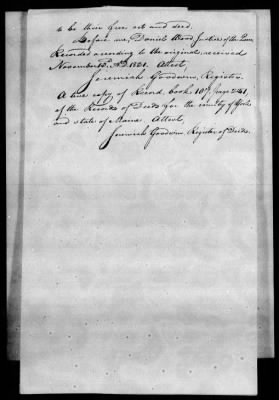 to be their free act and deed.
Before me, Daniel Wood Justice of the Peace,
Recorded according to the original, received
November AD. 1821. Attest,
Jeremiah Goodwin, Register.
A true copy of Record, book 107, page 241,
of the Records of Deeds for the county of York
and state of Maine. Attest,
Jeremiah Goodwin, Register of Deeds.